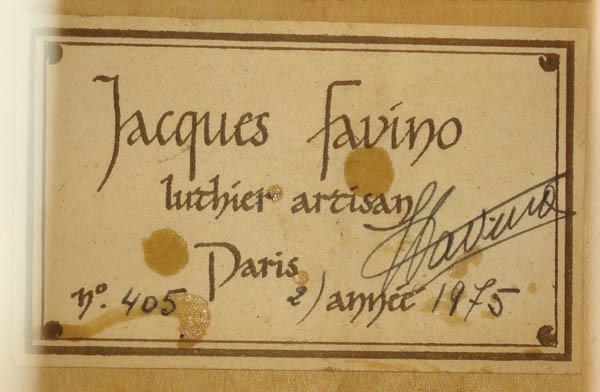 Jacques Favino
luthier artisan
Favino
Paris
nº. 405 2) année 1975